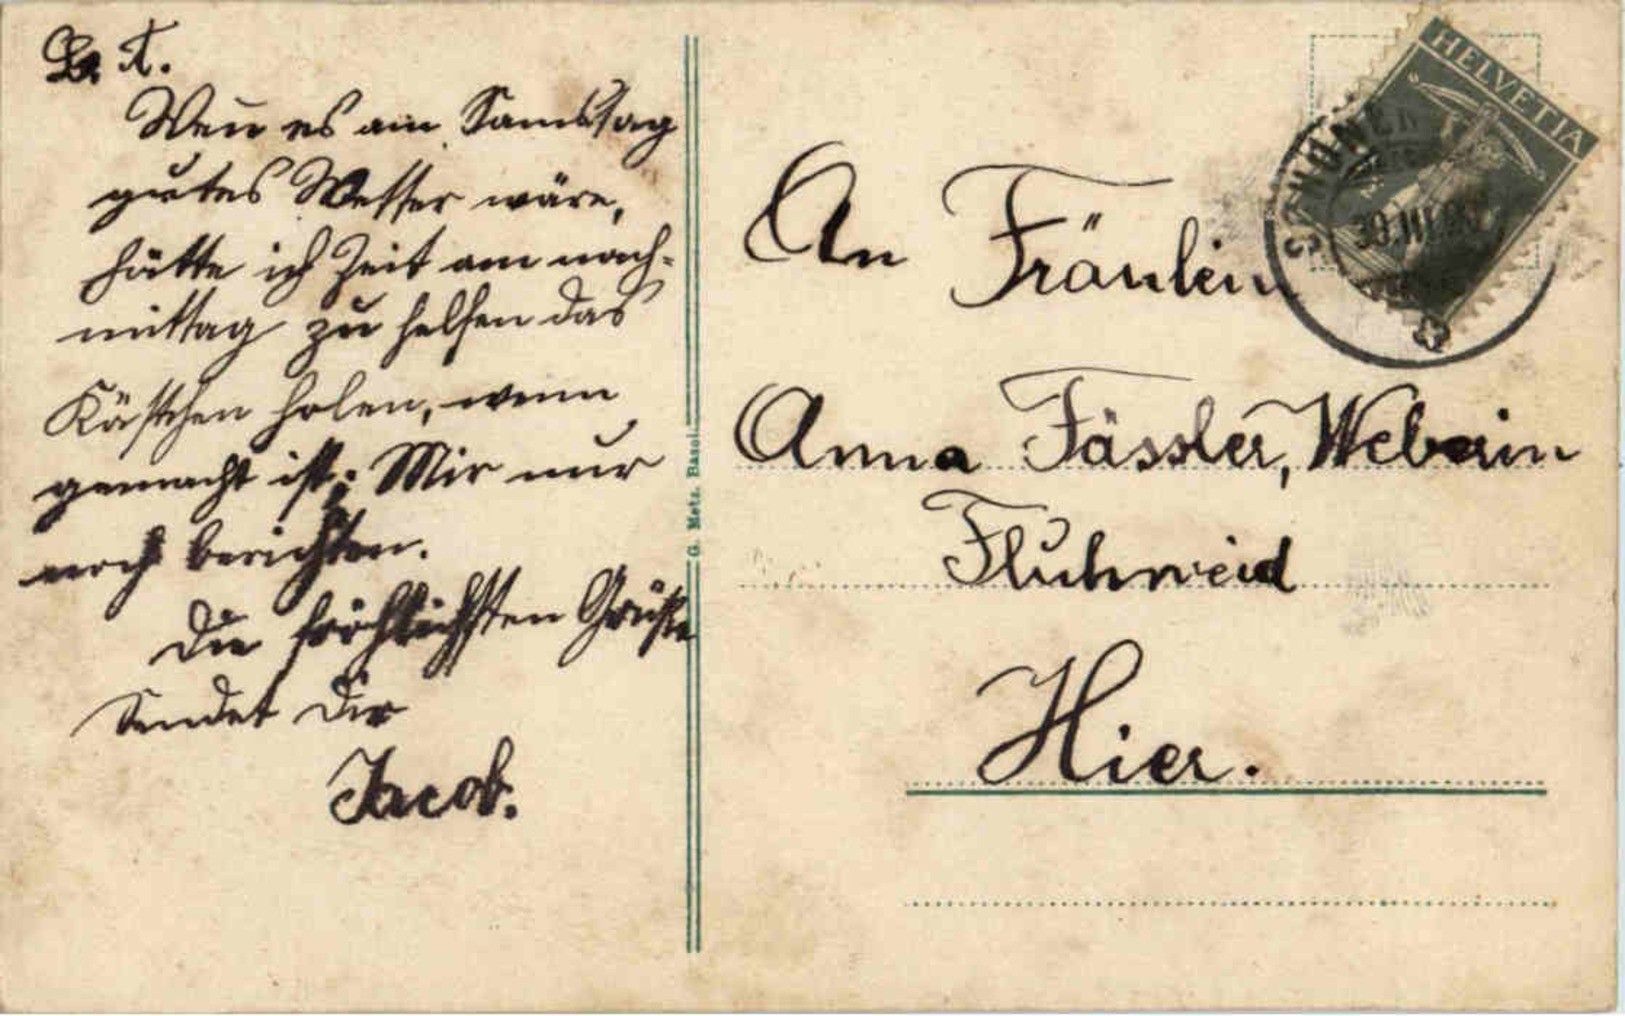 L. A.
Wen es am Samstag
gutes Wetter wäre,
hätte ich Zeit am nach-
mittag zu helfen das
Kästchen holen, wenn
gemacht ist. Mir nur
noch berichten.
Die fröhlichsten Grüße
Sendet Dir
Jacob.
G. Metz, Basel
HELVETIA
30.III.
An Fräulein
Anna Fässler, Weberin
Fluhweid
Hier.